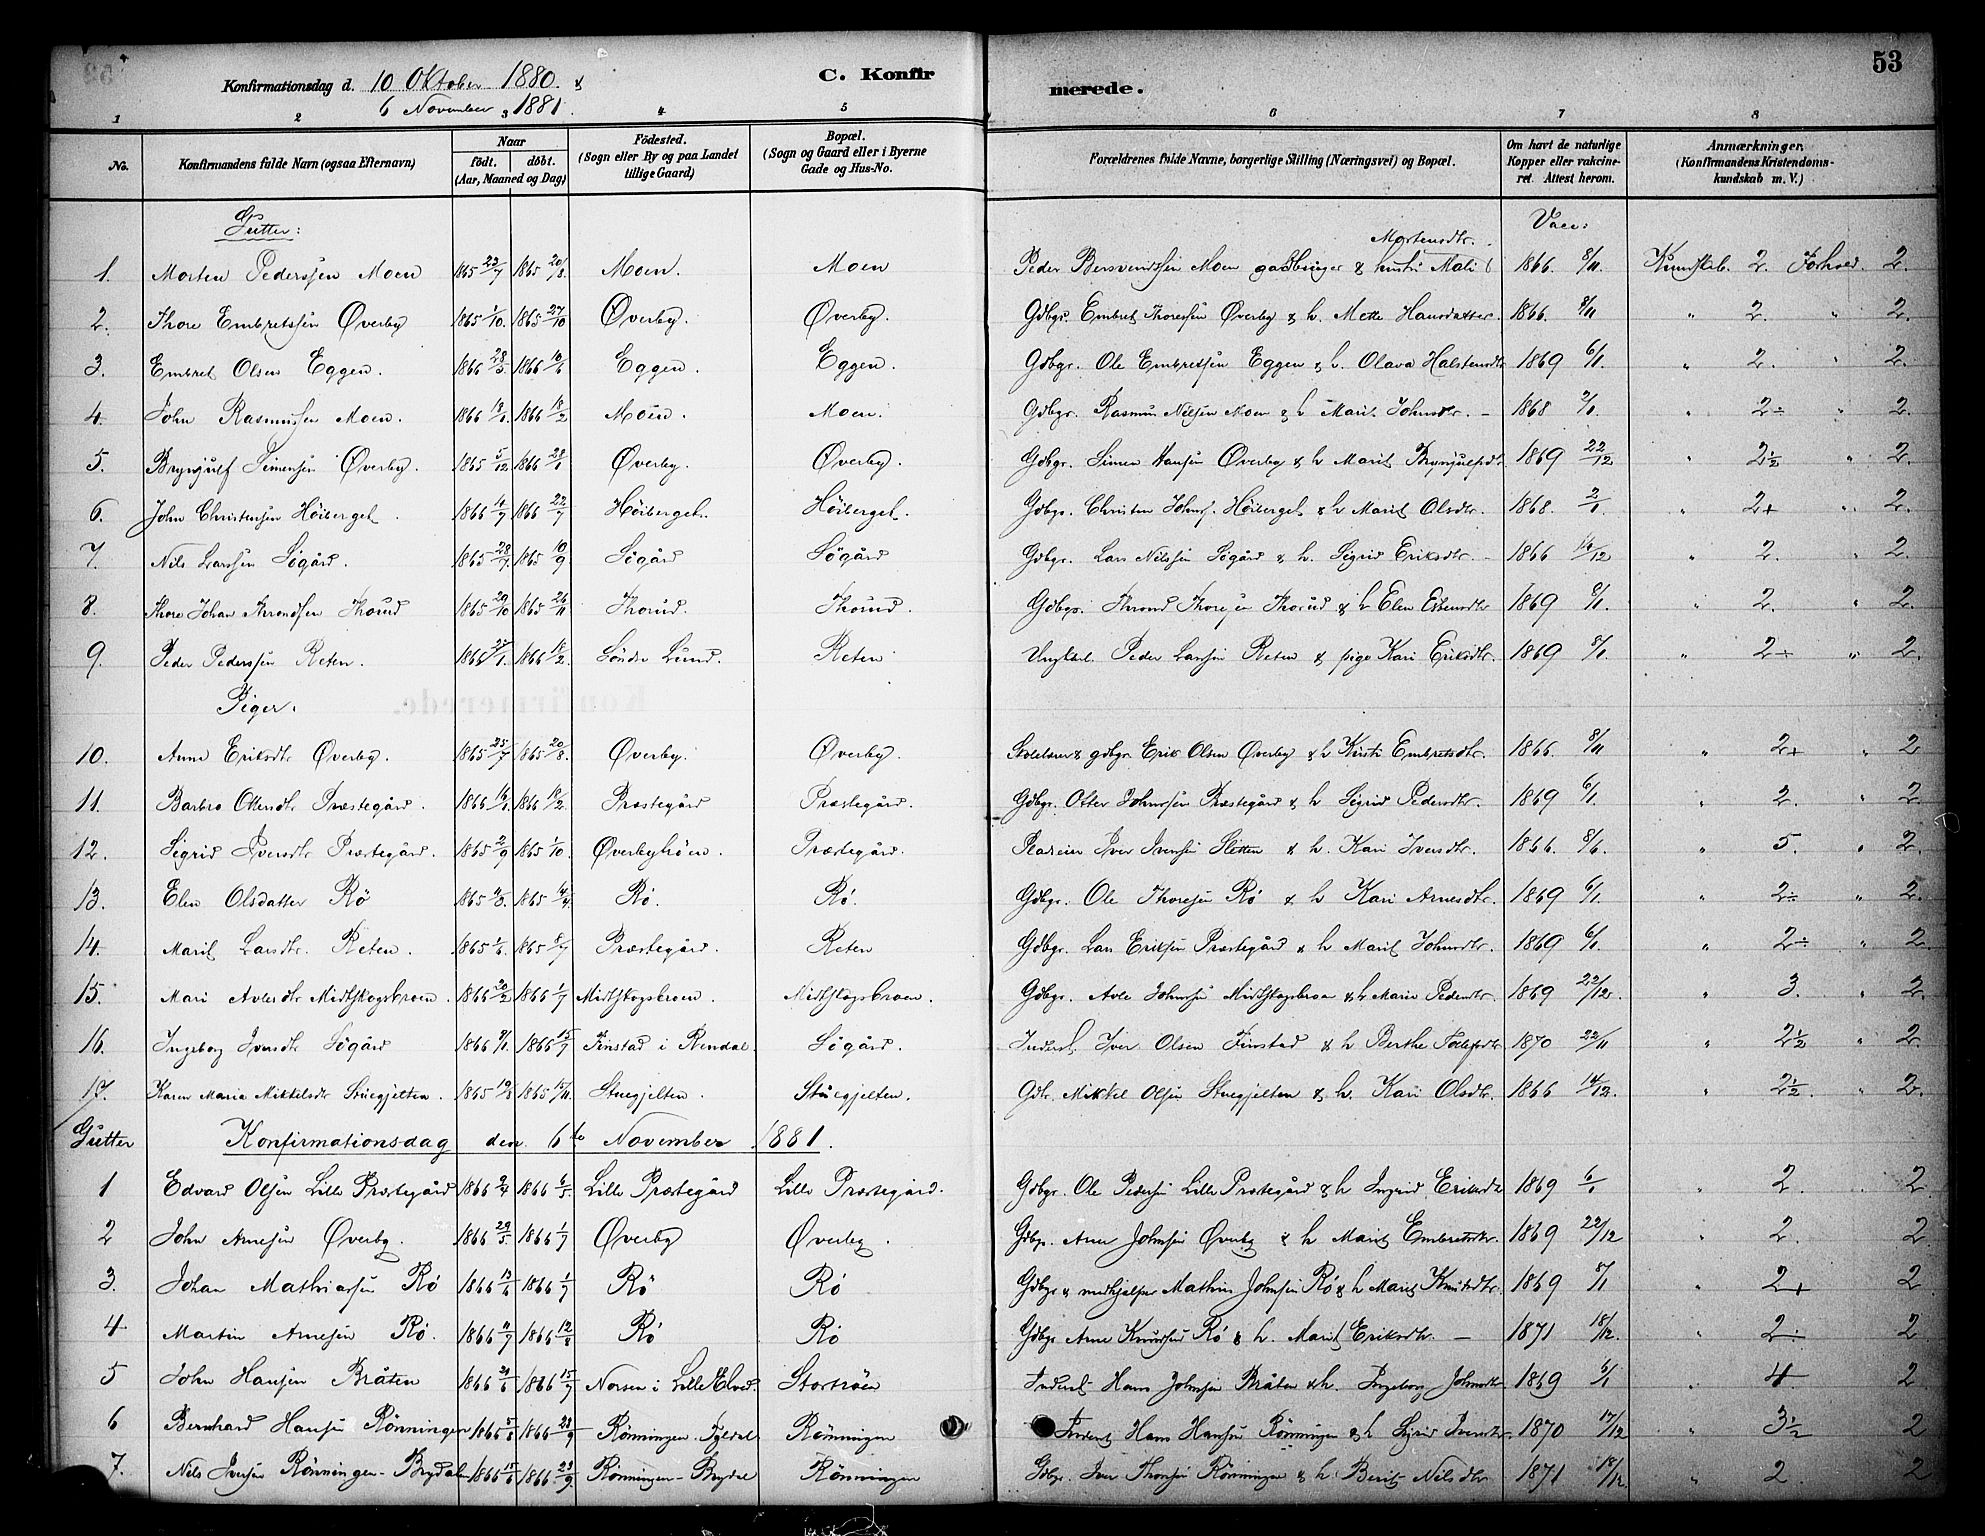 53
Konfirmationsdag d. 10 Oktober 1880 &
6 November 1881.
C. Konfirmerede.
1 2 3 4 5 6 7 8
No. Konfirmandens fulde Navn (ogsaa Efternavn) Naar födt. döbt. (Aar, Maaned og Dag) Födested. (Sogn eller By og paa Landet tillige Gaard) Bopæl. (Sogn og Gaard eller i Byerne Gade og Hus-No. Forældrenes fulde Navne, borgerlige Stilling (Næringsvei) og Bopæl. Om havt de naturlige Kopper eller vakcineret. Attest herom. Anmærkninger. (Konfirmandens Kristendomskundskab m. V.)
Gutter: Vacc:
Mortensdtr.
1. Morten Pederssen Moen 1865 23/7 1865 20/8. Moen. Moen Peder Bersvendssen Moen gaardbruger & hustru Mali 1866. 8/11. Kundskab. 2. Forhold. 2.
2. Thore Embretssen Øverby 1865 1/10. 1865 27/10 Øverby. Øverby. Gdbgr. Embret Thoressen Øverby & h. Mette Hansdatter. 1866. 8/11 " 2. " 2.
3. Embret Olsen Eggen. 1866 28/3. 1866 Eggen. Eggen. Gdbgr. Ole Embretssen Eggen & h. Olava Halstensdtr 1869 6/1. " 2. " 2.
4. John Rasmussen Moen. 1866 1866 18/2 Moen. Moen. Gdbgr. Rasmus Nilsen Moen & h Marit Johnsdtr. – 1868 2/1. " 2÷ " 2.
5. Brynjulf Simensen Øverby. 1865 5/12 1866 28/1 Øverby. Øverby. Gdbgr. Simen Hansen Øverby & h Marit Brynjulfsdtr 1869 22/12 " 2½ " 2.
6. John Christensen Höiberget. 1866 1866 22/7 Höiberget. Höiberget. Gdbgr. Christen Johns. Höiberget & h Marit Olsdtr. 1868. 2/1 " 2+ " 2.
7. Nils Larssen Sögård. 1865 28/7 1865 10/9 Sögård Sögård Gdbgr. Lars Nilssen Sögård & h. Sigrid Eriksdtr. – 1866 " 2. " 2.
8. Thore Johan Throndsen Thorud 1865 29/10 1865 26/11 Thorud. Thorud. Gdbgr. Thrond Thoresen Thorud & h Elen Estensdtr 1869 8/1. " 2. " 2.
9. Peder Pederssen Reten. 1866 1866 18/2. Söndre Lund. Reten Ungkarl Peder Larssen Reten & pige Kari Eriksdtr. 1869 8/1. " 2÷ " 2.
Piger.
10. Anne Eriksdtr Øverby. 1865 25/7 1865 20/8. Øverby. Øverby. gdbgr. Erik Olsen Øverby & h Kirsti Embretsdtr. 1866. 8/11 " 2+ " 2
11. Barbro Ottersdtr Præstegård. 1866 1866 18/2. Præstegård Præstegård. Gdbgr. Otter Johnssen Præstegård & h Sigrid Pedersdtr. 1869 6/1. " 2. " 2.
12. Sigrid Iversdtr Præstegård. 1865 2/9 1865 1/10. Øverbyhöen. Præstegård. Iver Iversen Sletten & h. Kari Iversdtr. 1866. 8/6. " 5. " 2.
13. Elen Olsdatter Rö 1865 1865 14/4. Rö. Rö. Gdbgr. Ole Thoresen Rö & h Kari Arnesdtr. 1869 6/1 " 2÷ " 2.
14. Marit Larsdtr. Reten. 1865 1/6. 1865 8/7 Præstegård. Reten Gdbgr. Lars Eriksen Præstegård & h Marit Johnsdtr. 1869 6/1 " 2÷ " 2.
15. Mari Avlesdtr Midtskogsbroen 1866 20/2 1866 1/7 Midtskogsbroen. Midtskogsbroen. Gdbgr. Avle Johnsen Midtskogsbroen & h Marie Pedersdtr. 1869 22/12. " 3. " 2.
16. Ingeborg Iversdtr Sögård 1866 9/1 1866 15/7 Finstad i Rendal. Sögård. Inderst. Iver Olsen Finstad & h Berthe 1870 22/11 " 2½ " 2.
17. Karen Maria Mikkelsdtr Stuegjelten. 1865 19/8 1865 15/11. Stuegjelten. Stuegjelten. Gdbr. Mikkel Olsen Stuegjelten & h. Kari Olsdtr. 1866 14/12. " 2½. " 2.
Gutter Konfirmationsdag den 6te November 1881.
1 Edvard Olsen Lille Præstegård 1866 2/4 1866 6/5. Lille Præstegård Lille Præstegård. Gdbgr. Ole Pedersen Lille Præstegård & h Ingrid Eriksdtr 1869 6/1 " 2. " 2.
2 John Arnesen Øverby. 1866 29/5. 1866 1/7 Øverby Øverby. Gdbgr. Arne Johnsen Øverby & h Marit Embretsdtr. 1869 22/12 " 2. 2.
3. Johan Mathiassen Rö 1866 13/6 1866 1/7 Rö Rö Gdbgr & medhjelper Mathias Johnsen Rö & h Marit Knudsdtr. 1869 8/1 " 2+ 2
4 Martin Arnesen Rö. 1866 11/7 1866 12/8 Rö Rö Gdbgr Arne Knudsen Rö & h. Marit Eriksdtr. – 1871 18/12. " 2÷ 2
5 John Hansen Bråten 1866 21/6 1866 15/7 Norsen i Lille Elved. Stortröen Inderst Hans Johnsen Bråten & h. Ingeborg Johnsdtr 1869 6/1 " 4 2.
6 Bernhard Hansen Rönningen 1866 5/8 1866 23/9 Rönningen. Tyldal Rönningen Inderst Hans Hansen Rönningen & h Sigrid Iversdtr. 1870 17/12 " 3½ 2
7. Nils Iversen Rönningen-Brydalen 1866 15/6 1866 23/9. Rönningen-Brydal Rönningen Gdbgr. Iver Thorsen Rönningen & h. Berit Nilsdtr 1871 18/12. " 2 2